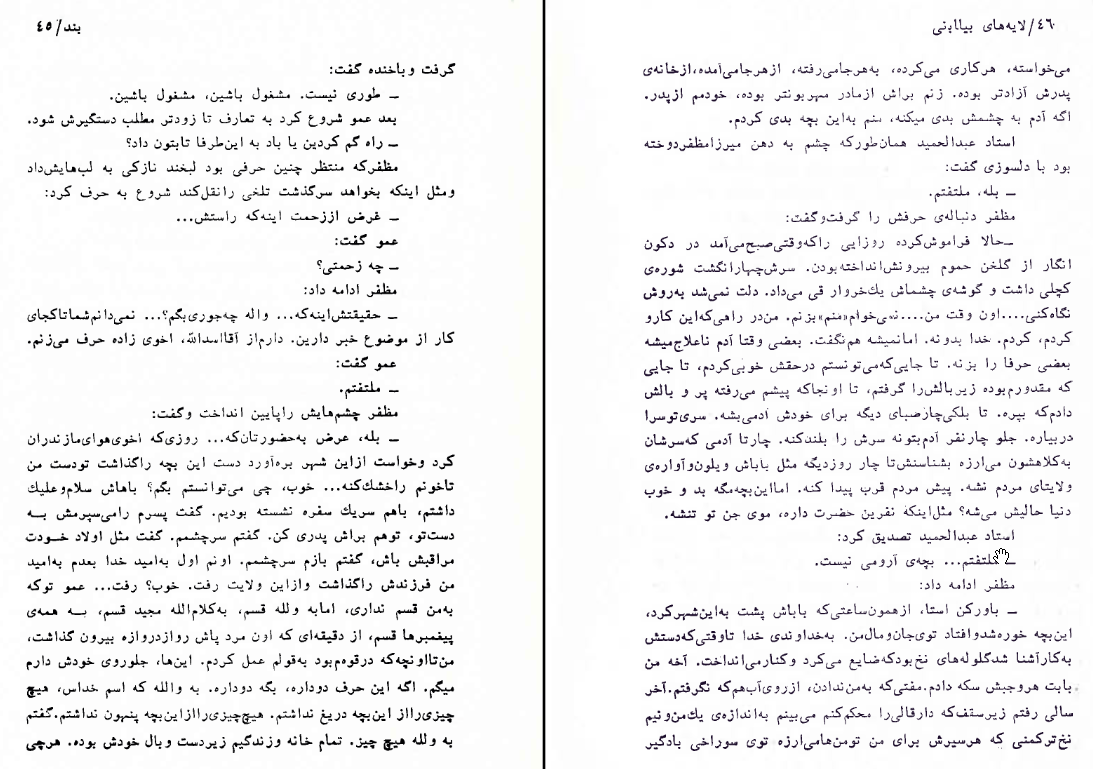 بند/٤٥
گرفت و باخنده گفت:
ــ طوری نیست. مشغول باشین، مشغول باشین.
بعد عمو شروع کرد به تعارف تا زودتر مطلب دستگیرش شود.
ــ راه گم کردین یا باد به این‌طرفا تابتون داد؟
مظفرکه منتظر چنین حرفی بود لبخند نازکی به لب‌هایش‌داد
ومثل اینکه بخواهد سرگذشت تلخی را نقل‌کند شروع به حرف کرد:
ــ غرض اززحمت اینه‌که راستش...
عمو گفت:
ــ چه زحمتی؟
مظفر ادامه داد:
ــ حقیقتش‌اینه‌که... واله چه‌جوری‌بگم؟... نمی‌دانم‌شماتاکجای
کار از موضوع خبر دارین. دارم‌از آقااسدالله، اخوی زاده حرف می‌زنم.
عمو گفت:
ــ ملتفتم.
مظفر چشم‌هایش راپایین انداخت وگفت:
ــ بله، عرض به‌حضورتان‌که... روزی‌که اخوی‌هوای‌مازندران
کرد وخواست ازاین شهر بره‌آورد دست این بچه راگذاشت تودست من
تاخونم راخشك‌کنه... خوب، چی می‌توانستم بگم؟ باهاش سلام‌وعلیك
داشتم، باهم سریك سفره نشسته بودیم. گفت پسرم رامی‌سپرمش بــه
دست‌تو، توهم براش پدری کن. گفتم سرچشمم. گفت مثل اولاد خــودت
مراقبش باش، گفتم بازم سرچشمم. اونم اول به‌امید خدا بعدم به‌امید
من فرزندش راگذاشت وازاین ولایت رفت. خوب؟ رفت... عمو توکه
به‌من قسم نداری، امابه ولله قسم، به‌کلام‌الله مجید قسم، بــه همه‌ی
پیغمبرها قسم، از دقیقه‌ای که اون مرد پاش رواز دروازه بیرون گذاشت،
من‌تااونچه‌که درقوه‌م‌بود به‌قولم عمل کردم. این‌ها، جلوروی خودش دارم
میگم. اگه این حرف دوداره، بگه دوداره. به والله که اسم خداس، هیچ
چیزی‌رااز این‌بچه دریغ نداشتم. هیچ‌چیزی‌رااز‌این‌بچه پنهون نداشتم.گفتم
به ولله هیچ چیز. تمام خانه وزندگیم زیردست وبال خودش بوده. هرچی
٤٦/لایه‌های بیابانی
می‌خواسته، هرکاری می‌کرده، به‌هرجامی‌رفته، ازهرجامی‌آمده،ازخانه‌ی
پدرش آزادتر بوده. زنم براش ازمادر مهربونتر بوده، خودمم ازپدر.
اگه آدم به چشمش بدی میکنه، منم به‌این بچه بدی کردم.
استاد عبدالحمید همان‌طورکه چشم به دهن میرزامظفردوخته
بود با دلسوزی گفت:
ــ بله، ملتفتم.
مظفر دنباله‌ی حرفش را گرفت‌وگفت:
ــ‌حالا فراموش‌کرده روزایی راکه‌وقتی‌صبح‌می‌آمد در دکون
انگار از گلخن حموم بیرونش‌انداخته‌بودن. سرش‌چهارانگشت شوره‌ی
کچلی داشت و گوشه‌ی چشماش یك‌خروار قی می‌داد. دلت نمی‌شد به‌روش
نگاه‌کنی....اون وقت من....نمی‌خوام«منم»بزنم. من‌در راهی‌که‌این کارو
کردم، کردم. خدا بدونه. امانمیشه هم‌نگفت. بعضی وقتا آدم ناعلاج‌میشه
بعضی حرفا را بزنه. تا جایی‌که‌می‌تونستم درحقش خوبی‌کردم، تا جایی
که مقدورم‌بوده زیربالش‌را گرفتم، تا اونجاکه پیشم می‌رفته پر و بالش
دادم‌که بپره. تا بلکی‌چارصبای دیگه برای خودش آدمی‌بشه. سری‌توسرا
دربیاره. جلو چارنفر آدم‌بتونه سرش را بلندکنه. چارتا آدمی که‌سرشان
به‌کلاهشون می‌ارزه بشناسنش‌تا چار روزدیگه مثل باباش ویلون‌وآواره‌ی
ولایتای مردم نشه. پیش مردم قرب پیدا کنه. امااین‌بچه‌مگه بد و خوب
دنیا حالیش می‌شه؟ مثل‌اینکه نفرین حضرت داره، موی جن تو تنشه.
استاد عبدالحمید تصدیق کرد:
ــ ملتفتم... بچه‌ی آرومی نیست.
مظفر ادامه داد:
ــ باورکن استا، ازهمون‌ساعتی‌که باباش پشت به‌این‌شهرکرد،
این‌بچه خوره‌شدوافتاد توی‌جان‌ومال‌من. به‌خداوندی خدا تاوقتی‌که‌دستش
به‌کارآشنا شدگلوله‌های نخ‌بودکه‌ضایع می‌کرد وکنارمی‌انداخت. آخه من
بابت هروجبش سکه دادم.مفتی‌که به‌من‌ندادن، ازروی‌آب‌هم‌که نگرفتم.آخر
سالی رفتم زیرسقف‌که دارقالی‌را محکم‌کنم می‌بینم به‌اندازه‌ی یك‌من‌ونیم
نخ‌ترکمنی که هرسیرش برای من تومن‌هامی‌ارزه توی سوراخی بادگیر